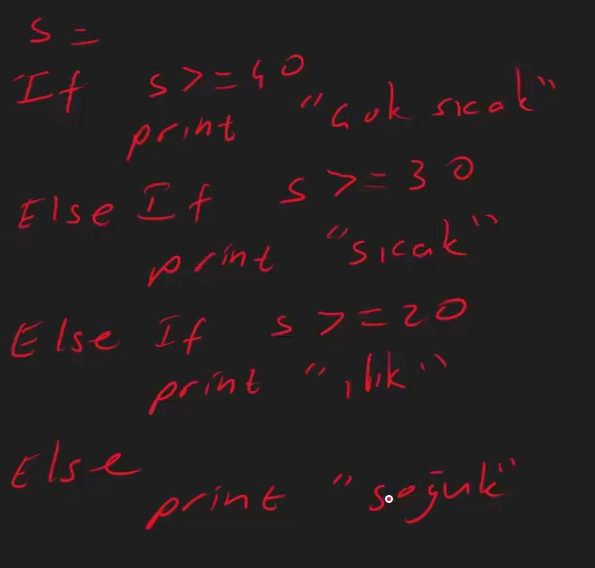 s =
If s >= 40
print "çok sıcak"
Else If s >= 30
print "sıcak"
Else If s >= 20
print "ılık"
Else
print "soğuk"